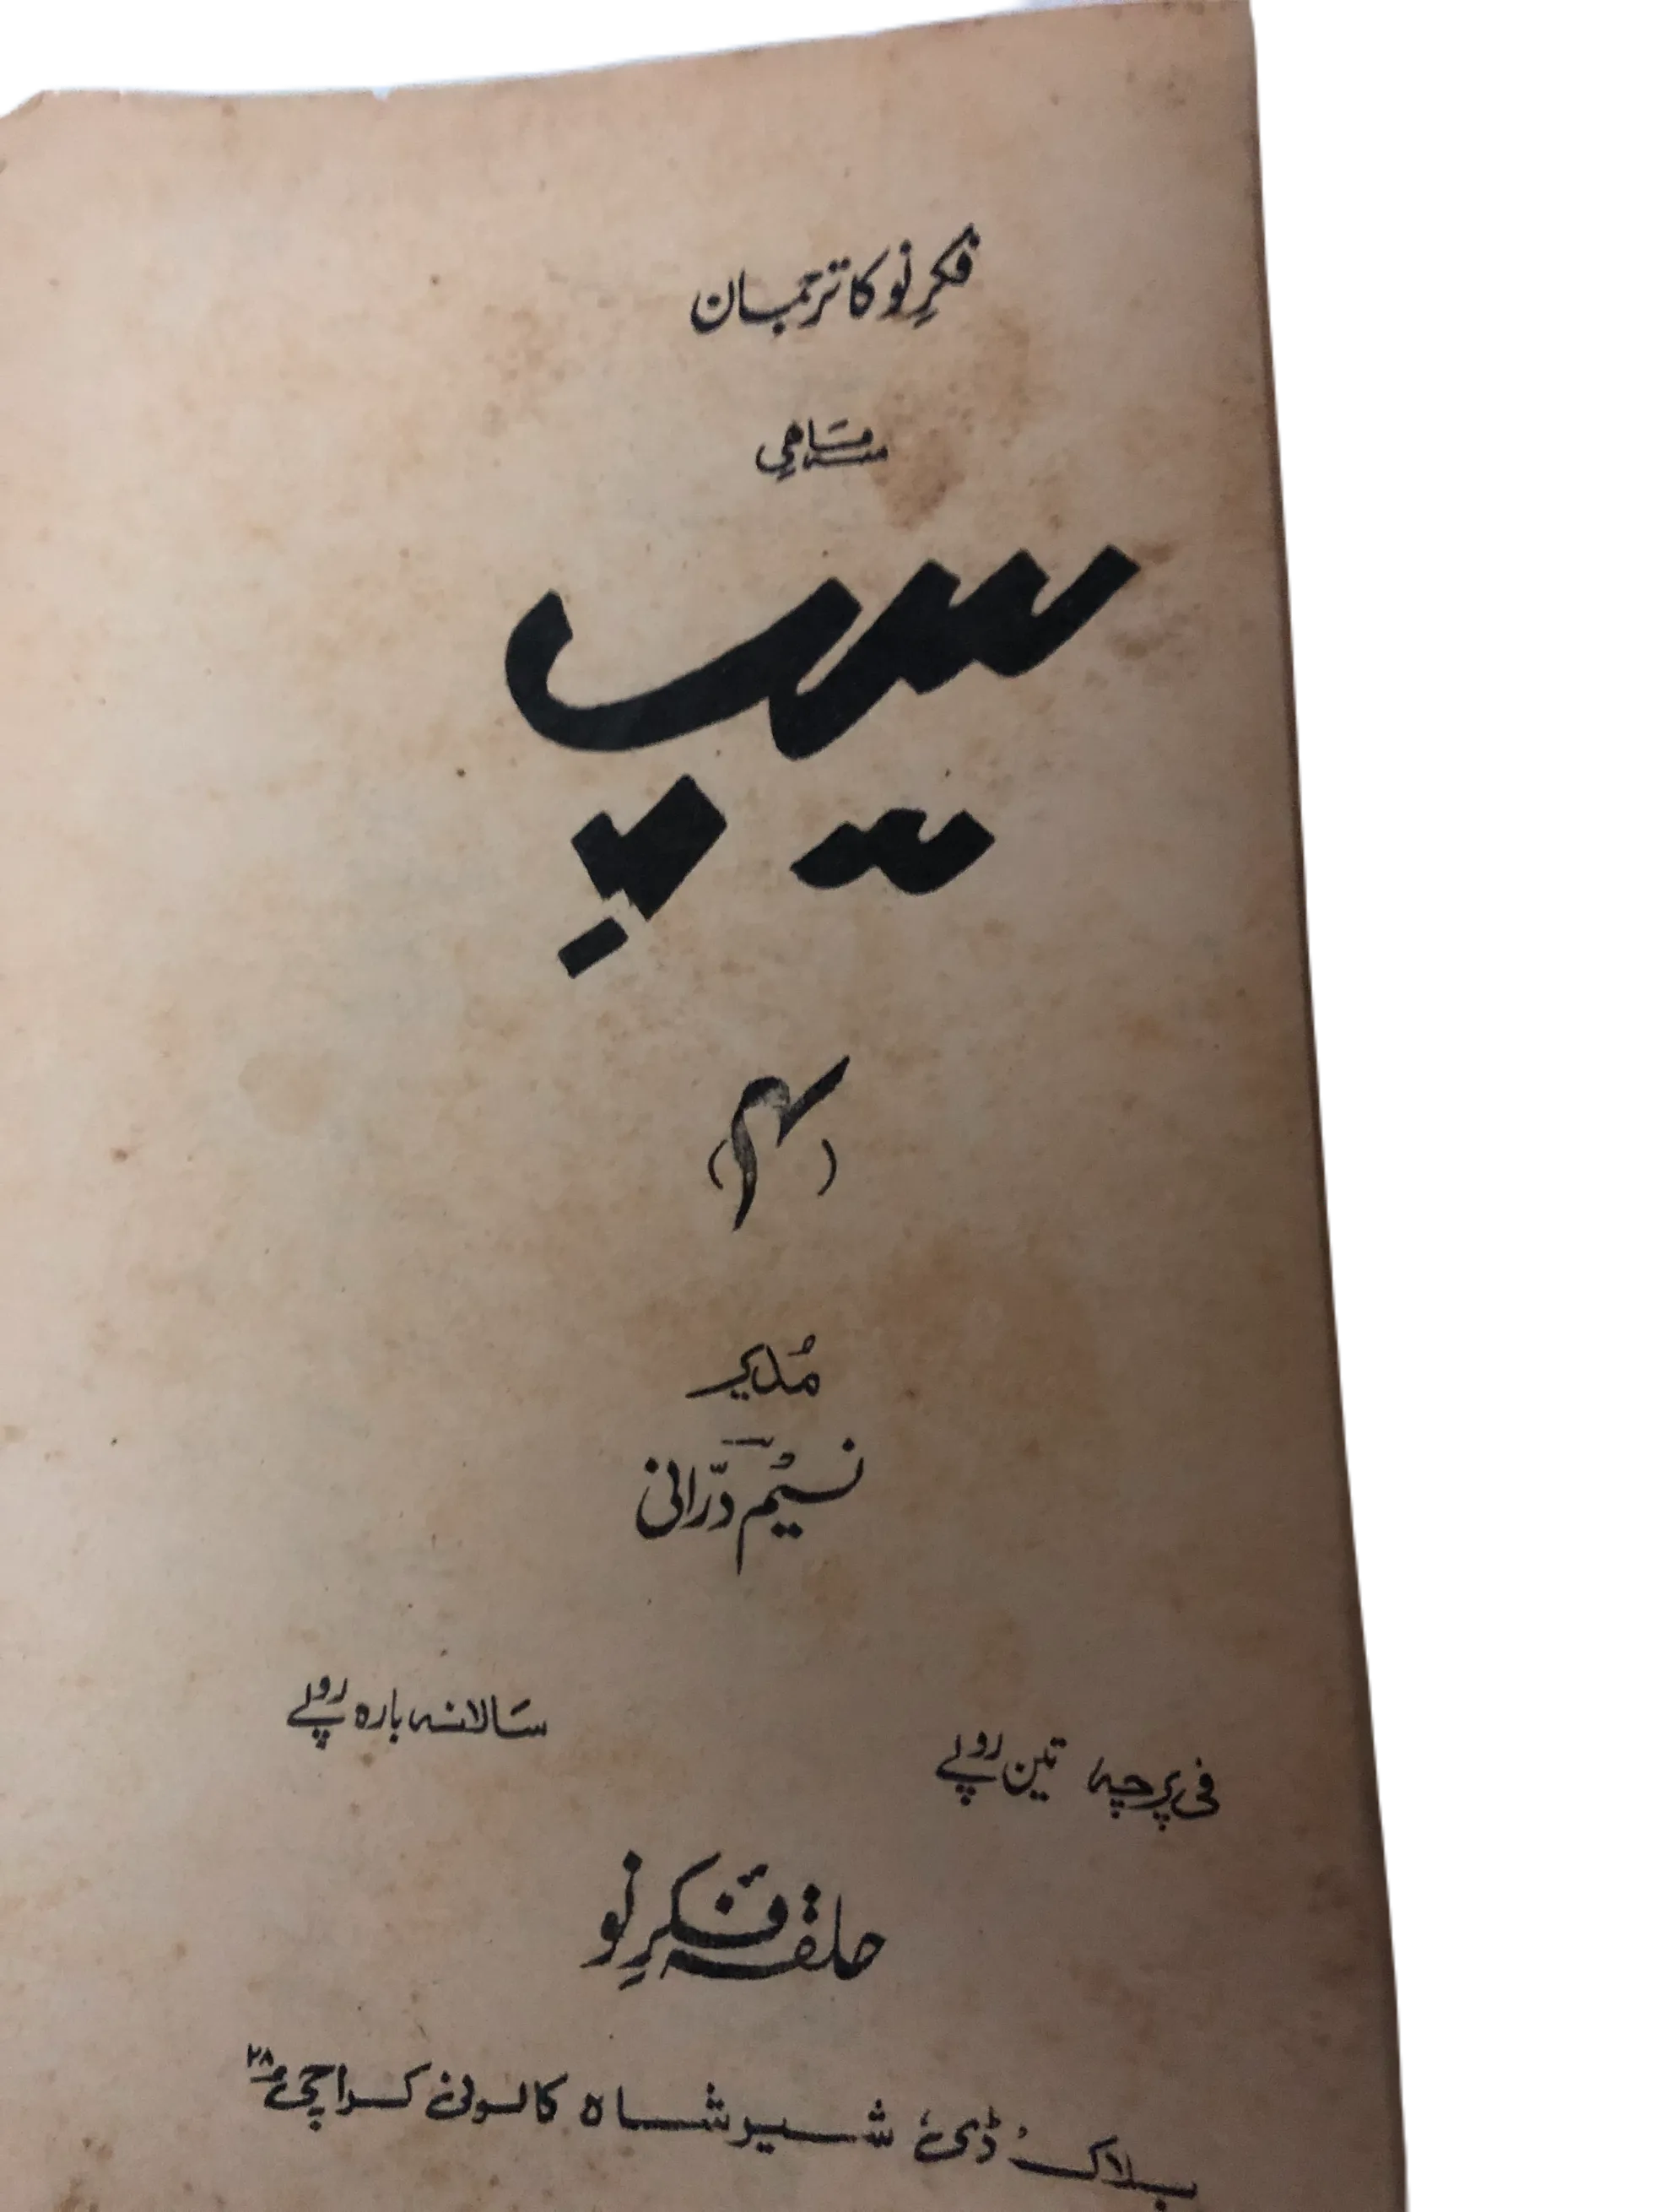 فکرِ نو کا ترجمان
سہ ماهی
سیپ
(۴)
مُدیر
نسیم درّانی
فی پرچہ تین روپے
سالانہ بارہ روپے
حلقۂ فکرِ نو
بلاک ڈی، شیر شاہ کالونی کراچی ۲۸